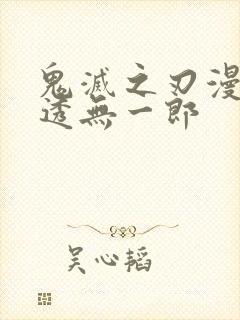 鬼滅之刃漫
透無一郎
吴心韬